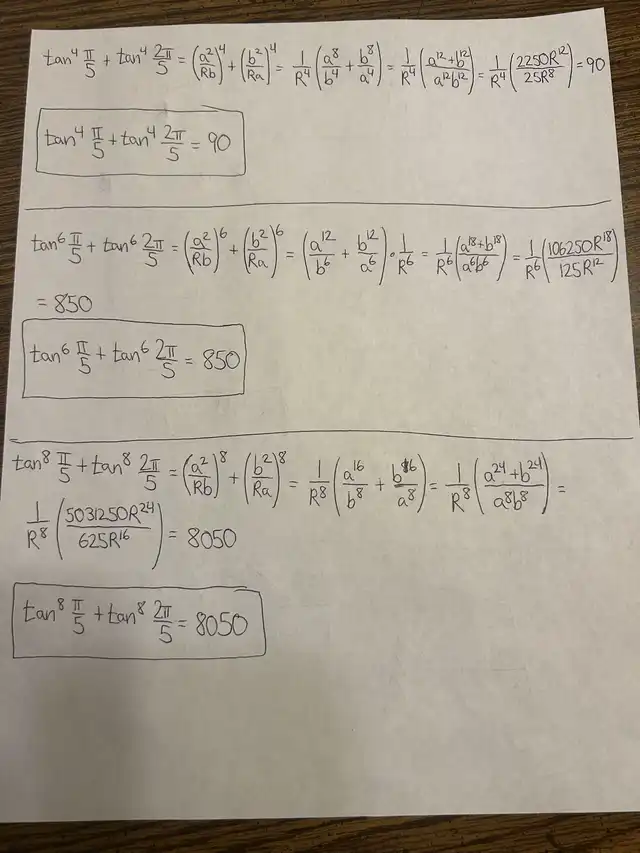 tan⁴ π/5 + tan⁴ 2π/5 = (a²/Rb)⁴ + (b²/Ra)⁴ = 1/R⁴ (a⁸/b⁴ + b⁸/a⁴) = 1/R⁴ (a¹²+b¹²/a¹²b¹²) = 1/R⁴ (2250R¹²/25R⁸) = 90
tan⁴ π/5 + tan⁴ 2π/5 = 90
tan⁶ π/5 + tan⁶ 2π/5 = (a²/Rb)⁶ + (b²/Ra)⁶ = (a¹²/b⁶ + b¹²/a⁶) • 1/R⁶ = 1/R⁶ (a¹⁸+b¹⁸/a⁶b⁶) = 1/R⁶ (106250R¹⁸/125R¹²)
= 850
tan⁶ π/5 + tan⁶ 2π/5 = 850
tan⁸ π/5 + tan⁸ 2π/5 = (a²/Rb)⁸ + (b²/Ra)⁸ = 1/R⁸ (a¹⁶/b⁸ + b¹⁶/a⁸) = 1/R⁸ (a²⁴+b²⁴/a⁸b⁸) =
1/R⁸ (5031250R²⁴/625R¹⁶) = 8050
tan⁸ π/5 + tan⁸ 2π/5 = 8050